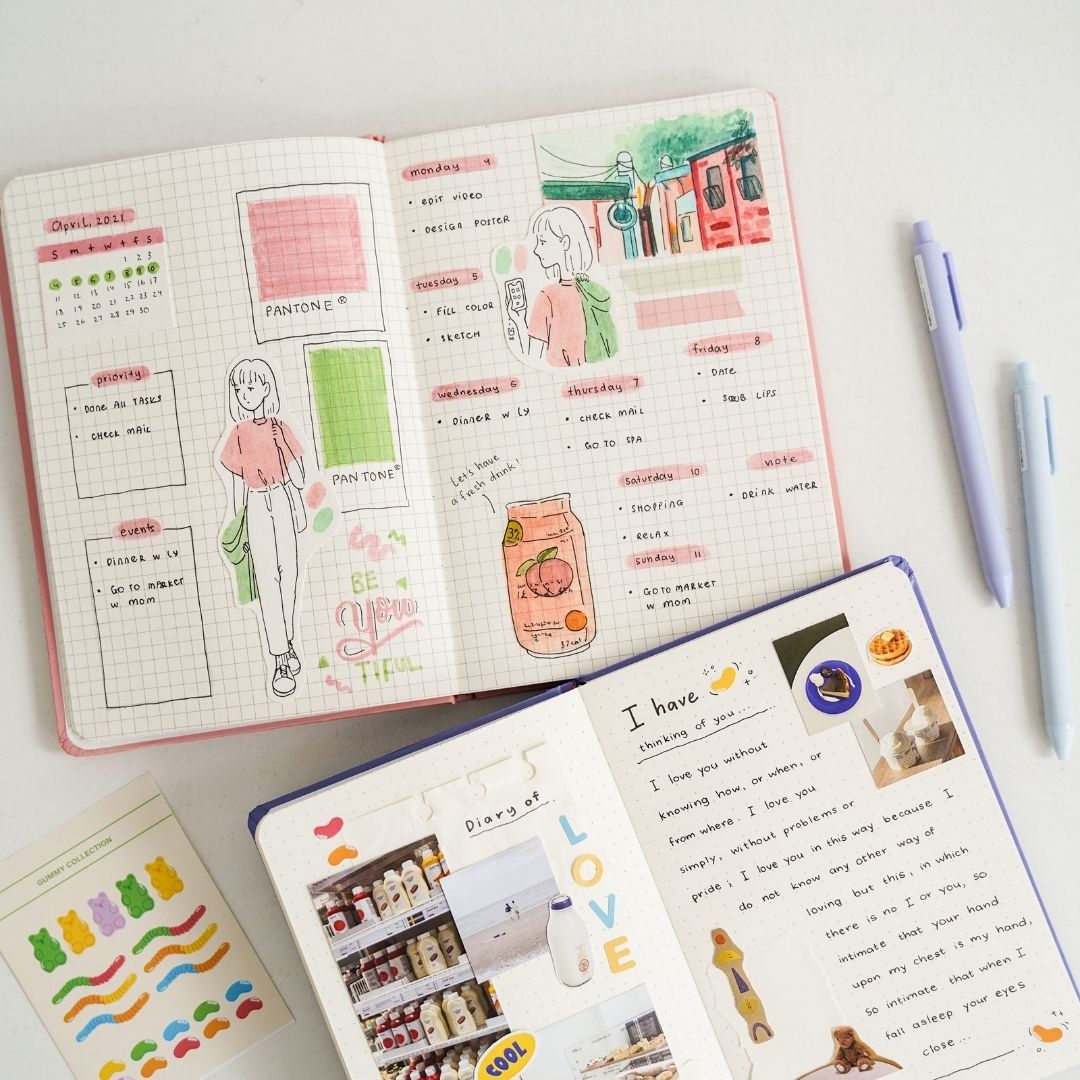 April, 2021
S m t w t f s
1 2 3
4 5 6 7 8 9 10
11 12 13 14 15 16 17
18 19 20 21 22 23 24
25 26 27 28 29 30
priority
• DONE ALL TASKS
• CHECK MAIL
events
• DINNER W LY
• GO TO MARKET
W. MOM
PANTONE®
PANTONE®
BE
you
TIFUL
monday 4
• EDIT VIDEO
• DESIGN POSTER
tuesday 5
• FILL COLOR
• SKETCH
wednesday 6
• DINNER W LY
thursday 7
• CHECK MAIL
• GO TO SPA
friday 8
• DATE
• SCUB LIPS
saturday 10
• SHOPPING
• RELAX
note
• DRINK WATER
sunday 11
• GO TO MARKET
W MOM
Let's have
a fresh drink!
3%
37cal
GUMMY COLLECTION
Diary of
LOVE
COOL
I have
thinking of you...
I love you without
knowing how, or when, or
from where. I love you
simply, without problems or
pride; I love you in this way because I
do not know any other way of
loving but this, in which
there is no I or you, so
intimate that your hand
upon my chest is my hand,
so intimate that when I
fall asleep your eyes
close...